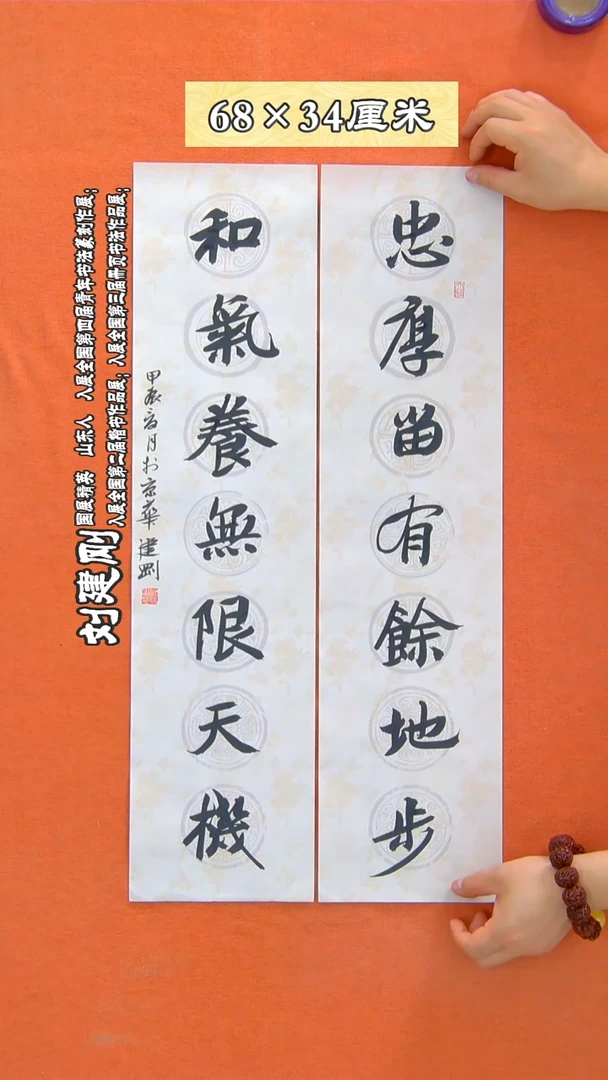 68×34厘米
忠厚留有餘地步
和氣養無限天機
甲辰 月於京華 建剛
刘建刚
国展精英 山东人 入展全国第四届青年书法篆刻作展;
入展全国第二届楷书作品展; 入展全国第三届册页书法作品展;